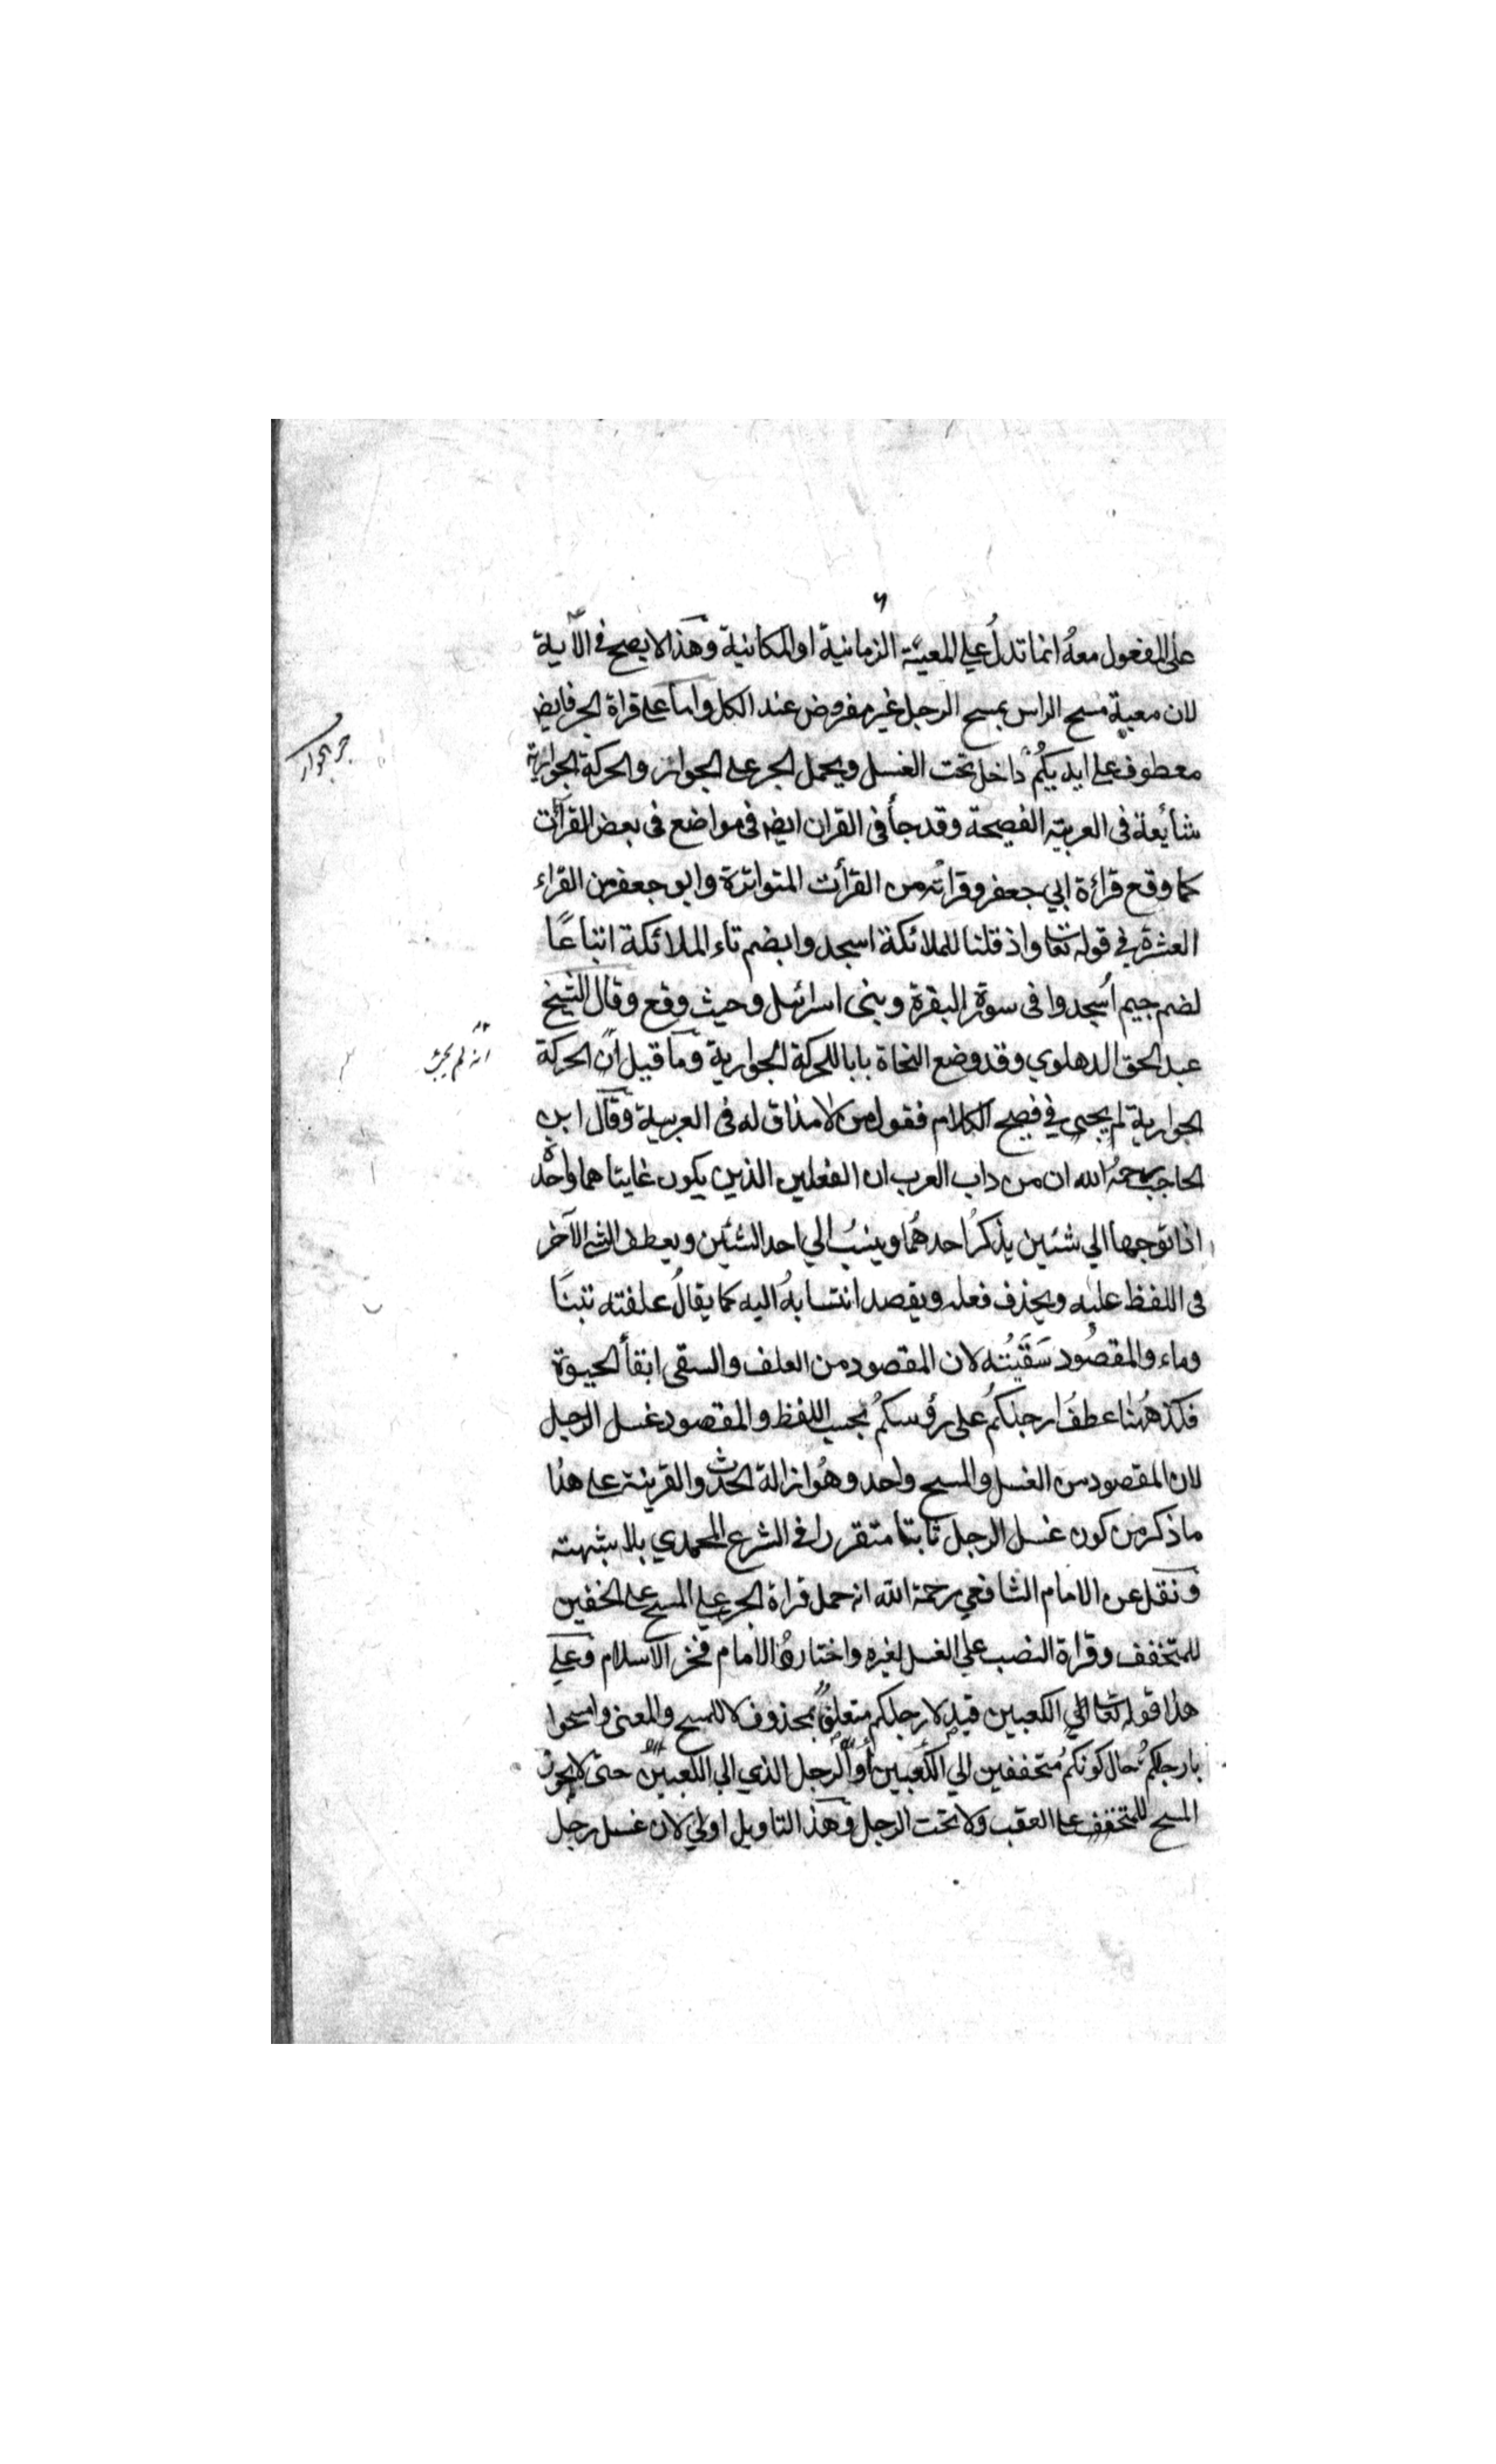 ٦
على المفعول معهُ انما تدلُ علي المعية الزمانية او المكانية وهذا لا يصح في الآية
لان معية مسح الراس بمسح الرجل غير مفروض عند الكل واما على قراة الجر فايضا
معطوف على ايديكُم داخل تحت الغسل ويحمل الجر على الجوار والحركة الجوارية
شائعة في العربية الفصيحة وقد جأ في القران ايضا في مواضع في بعض القرأت
كما وقع قراءة ابي جعفر وقراته من القرأت المتواترة وابو جعفر من القراء
العشرة في قوله تعا واذ قلنا للملائكة اسجدوا بضم تاء الملائكة اتباعًا
لضم جيم اُسجدوا في سورة البقرة وبنى اسرائيل وحيث وقع وقال الشيخ
عبد الحق الدهلوي وقد وضع النحاة بابا للحركة الجوارية وما قيل ان الحركة
الجوارية لم يجئ في فصيح الكلام فقول من لا مذاق له في العربية وقال ابن
الحاجب رحمهُ الله ان من داب العرب ان الفعلين الذين يكون غايتاهما واحدة
اذا توجها الي شئين يذكرُ احدهُما وينسبُ الي احد الشئين ويعطف الشئ الآخر
في اللفظ عليه ويحذف فعله ويقصد انتسابهُ اليه كما يقالُ علفته تبنًا
وماء والمقصُود سَقَيتُه لان المقصود من العلف والسقى ابقأ الحيوة
فكذا هُهنا عطفُ ارجلكُم على رؤسكُم بحسب اللفظ والمقصود غسل الرجل
لان المقصود من الغسل والمسح واحد وهُو ازالة الحدث والقرينة على هذا
ما ذكر من كون غسل الرجل ثابتا متقررا في الشرع المحمدي بلا شبهته
ونقل عن الامام الشافعي رحمة الله انه حمل قراة الجر علي المسح على الخفين
للمتخفف وقراة النصب علي الغسل لغيره واختارهُ الامام فخر الاسلام وعلي
هذا قوله تعا الي الكعبين قيد لارجلكم متعلقٌ بمحذوف لا للمسح والمعنى وامسحوا
بارجلكُم حال كونكُم متخففين الي الكعبين او الرجل الذي الي الكعبين حتى لا يجوز
المسح للمتخفف على العقب ولا تحت الرجل وهذا التاويل اولي لان غسل رجل
جر الجوار
انه لم يجئ